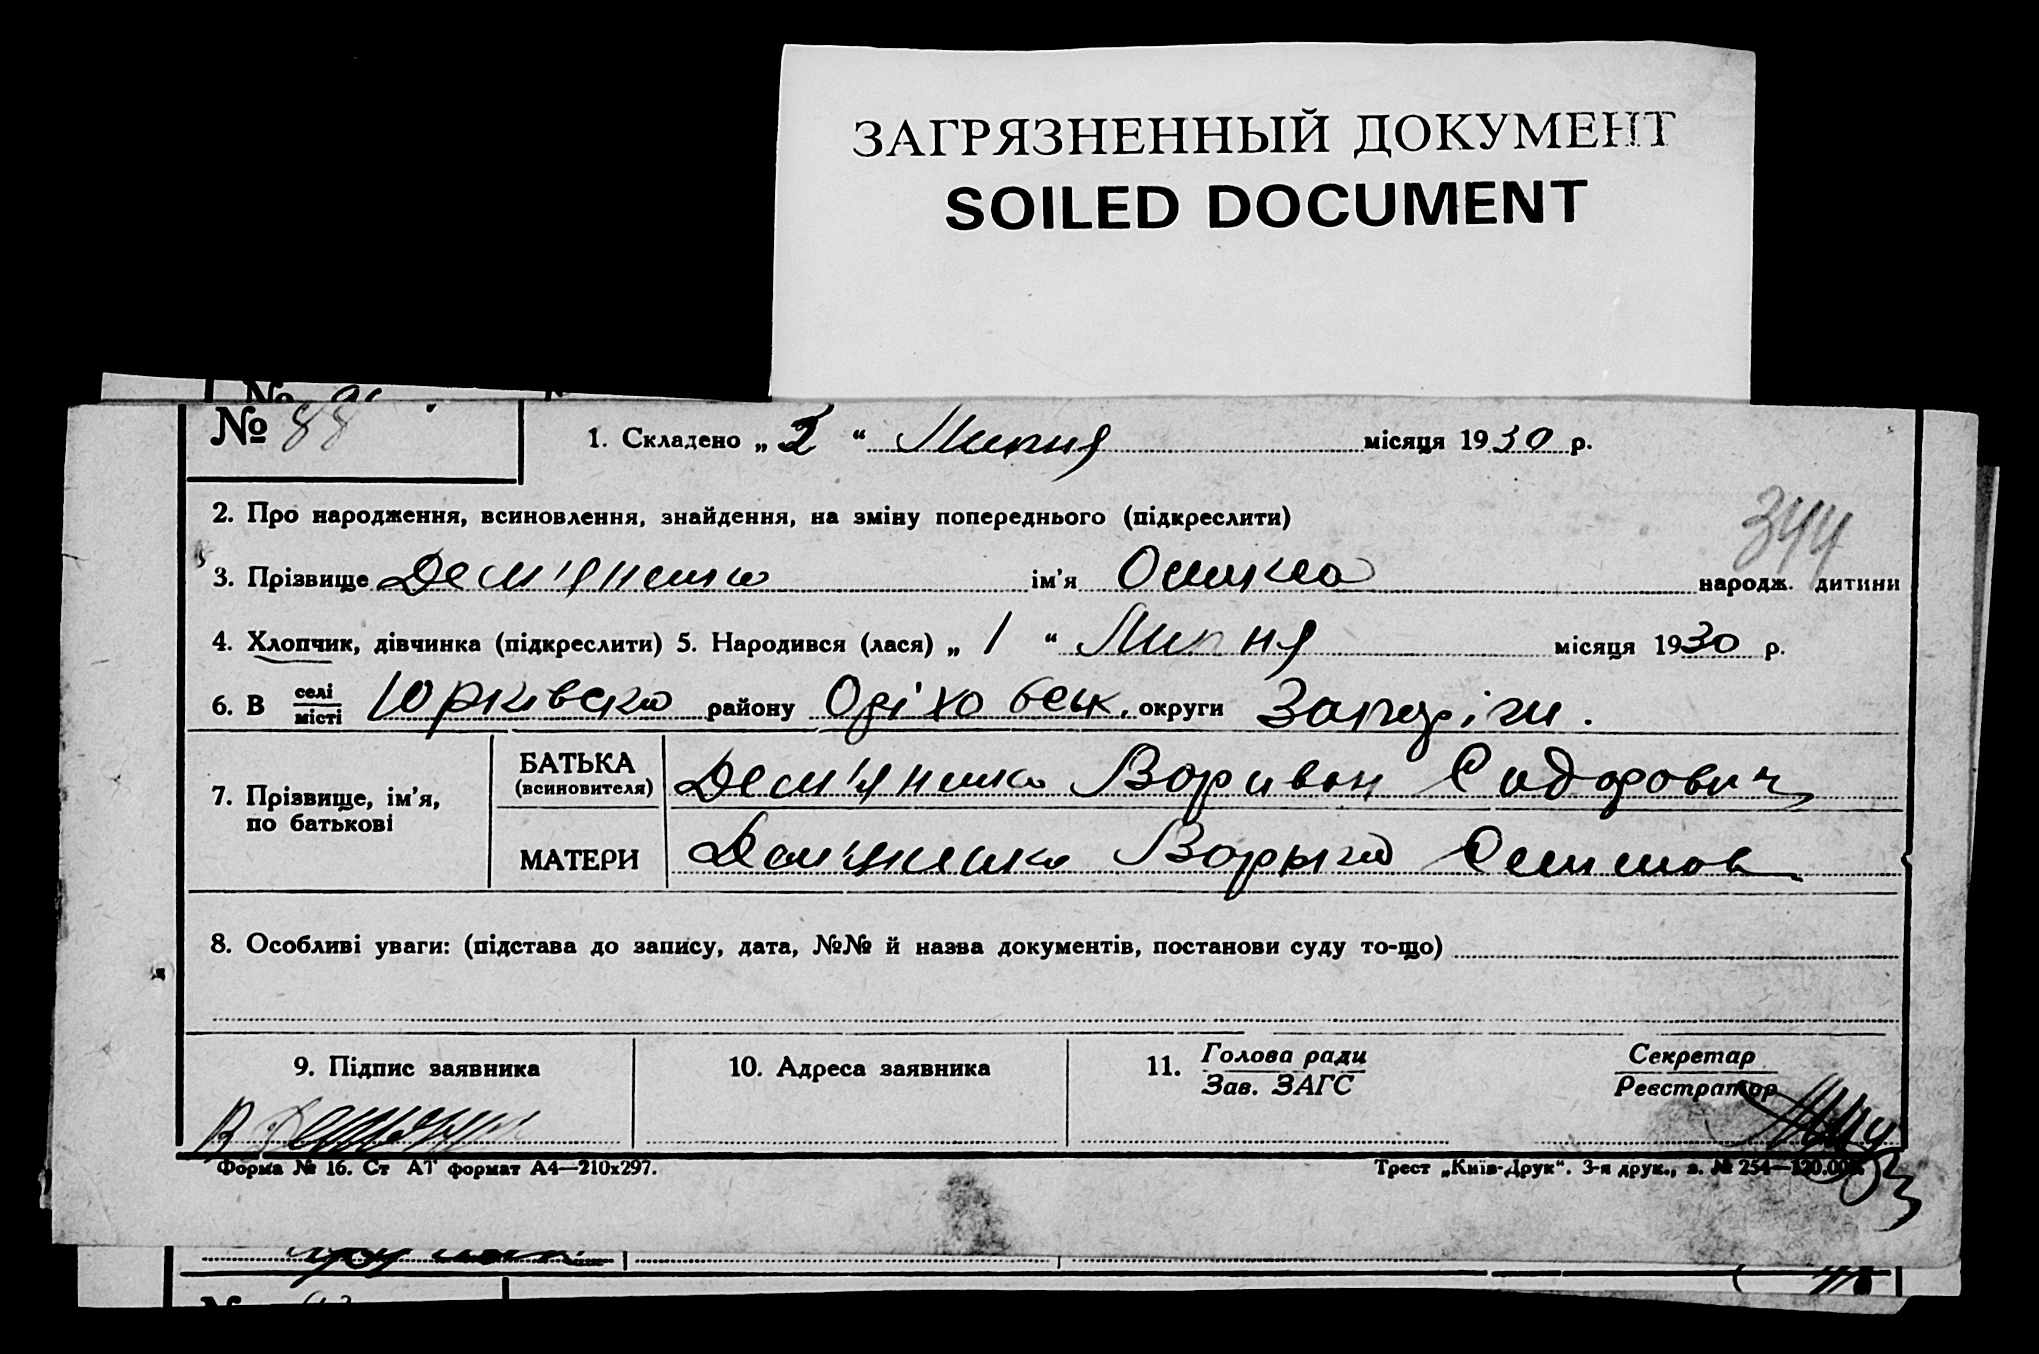 ЗАГРЯЗНЕННЫЙ ДОКУМЕНТ
SOILED DOCUMENT
№ 88
1. Складено „ 2 “ Липня місяця 1930 р.
2. Про народження, всиновлення, знайдення, на зміну попереднього (підкреслити)
344
3. Прізвище Дем'яненко ім'я народж. дитини
4. Хлопчик, дівчинка (підкреслити) 5. Народився (лася) „ 1 “ Липня місяця 1930 р.
6. В селі/місті Юрківско району Оріховськ. округи Запоріж.
7. Прізвище, ім'я, по батькові
БАТЬКА (всиновителя) Дем'яненко Сидорович
МАТЕРИ
8. Особливі уваги: (підстава до запису, дата, №№ й назва документів, постанови суду то-що)
9. Підпис заявника
10. Адреса заявника
11. Голова ради / Зав. ЗАГС
Секретар / Реєстратор
Форма № 16. Ст АТ формат А4—210х297.
Трест „Київ-Друк“. 3-я друк., з. № 254—